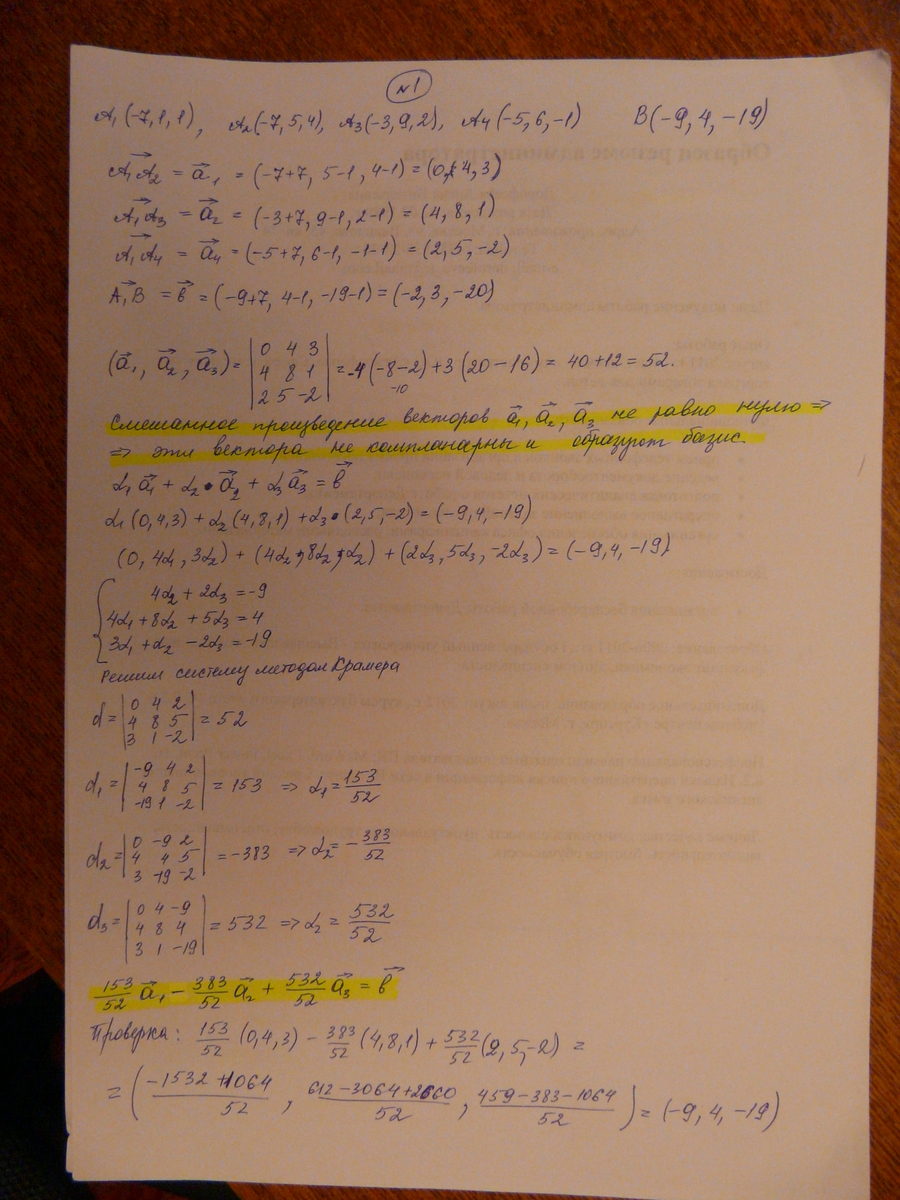 №1
A₁(-7,1,1), A₂(-7,5,4), A₃(-3,9,2), A₄(-5,6,-1) B(-9,4,-19)
A₁A₂ = a₁ = (-7+7, 5-1, 4-1) = (0, 4, 3)
A₁A₃ = a₂ = (-3+7, 9-1, 2-1) = (4, 8, 1)
A₁A₄ = a₄ = (-5+7, 6-1, -1-1) = (2, 5, -2)
A₁B = b = (-9+7, 4-1, -19-1) = (-2, 3, -20)
(a₁, a₂, a₃) = |0 4 3; 4 8 1; 2 5 -2| = -4(-8-2)+3(20-16) = 40+12 = 52.
-10
Смешанное произведение векторов a₁, a₂, a₃ не равно нулю ⇒
⇒ эти вектора не компланарны и образуют базис.
α₁a₁ + α₂·a₂ + α₃a₃ = b
α₁(0,4,3) + α₂(4,8,1) + α₃·(2,5,-2) = (-9,4,-19)
(0, 4α₁, 3α₁) + (4α₂, 8α₂, α₂) + (2α₃, 5α₃, -2α₃) = (-9, 4, -19)
4α₂ + 2α₃ = -9
4α₁ + 8α₂ + 5α₃ = 4
3α₁ + α₂ - 2α₃ = -19
Решим систему методом Крамера
d = |0 4 2; 4 8 5; 3 1 -2| = 52
d₁ = |-9 4 2; 4 8 5; -19 1 -2| = 153 ⇒ α₁ = 153/52
d₂ = |0 -9 2; 4 4 5; 3 -19 -2| = -383 ⇒ α₂ = -383/52
d₃ = |0 4 -9; 4 8 4; 3 1 -19| = 532 ⇒ α₂ = 532/52
153/52 a₁ - 383/52 a₂ + 532/52 a₃ = b
Проверка: 153/52 (0,4,3) - 383/52 (4,8,1) + 532/52 (2,5,-2) =
= ((-1532+1064)/52, (612-3064+2660)/52, (459-383-1064)/52) = (-9, 4, -19)